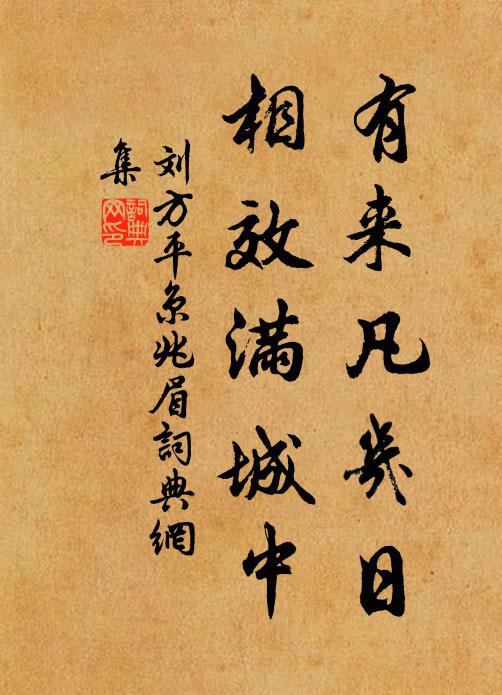 有来凡几日
相效满城中
刘方平京兆眉詞典網
集
詞典
网印